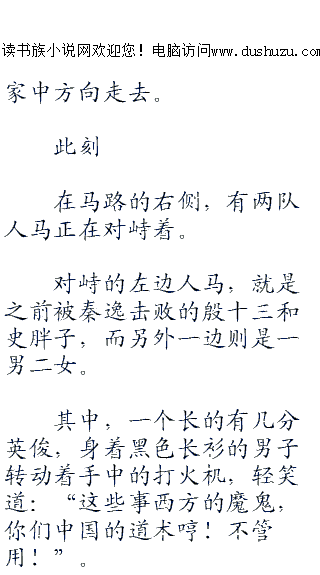 读书族小说网欢迎您！电脑访问www.dushuzu.com
家中方向走去。
此刻
在马路的右侧，有两队
人马正在对峙着。
对峙的左边人马，就是
之前被秦逸击败的殷十三和
史胖子，而另外一边则是一
男二女。
其中，一个长的有几分
英俊，身着黑色长衫的男子
转动着手中的打火机，轻笑
道：“这些事西方的魔鬼，
你们中国的道术哼！不管
用！”。